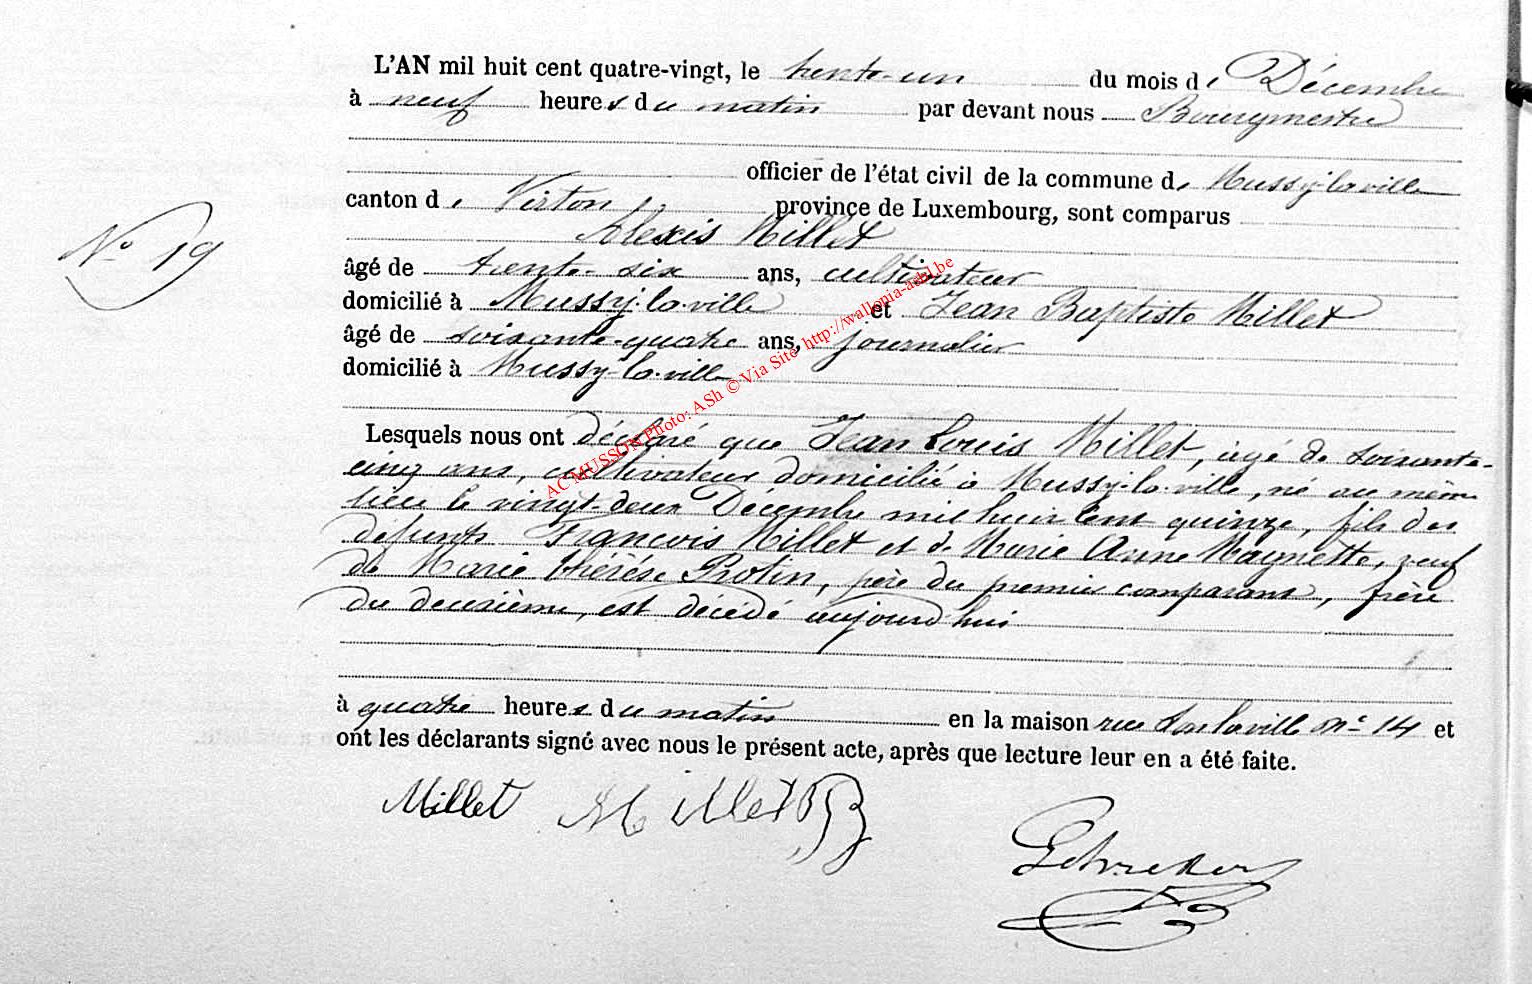 L'AN mil huit cent quatre-vingt, le trente-un du mois de Décembre
à neuf heures du matin par devant nous Bourgmestre
officier de l'état civil de la commune de Mussy-la-ville
canton de Virton, province de Luxembourg, sont comparus
Alexis Millet
âgé de trente-six ans, cultivateur
domicilié à Mussy-la-ville et Jean Baptiste Millet
âgé de soixante-quatre ans, journalier
domicilié à Mussy-la-ville
N° 19
Lesquels nous ont déclaré que Jean Louis Millet, âgé de soixante-
cinq ans, cultivateur domicilié à Mussy-la-ville, né au même
lieu le vingt-deux Décembre mil huit cent quinze, fils des
défunts François Millet et de Marie Anne Magnette, veuf
de Marie thérèse Protin, père du premier comparant, frère
du deuxième, est décédé aujourd'hui
à quatre heures du matin en la maison rue la ville N° 14 et
ont les déclarants signé avec nous le présent acte, après que lecture leur en a été faite.
Millet Millet JB
AC MUSSON Photo: ASh © Via Site http://wallonia-asbl.be